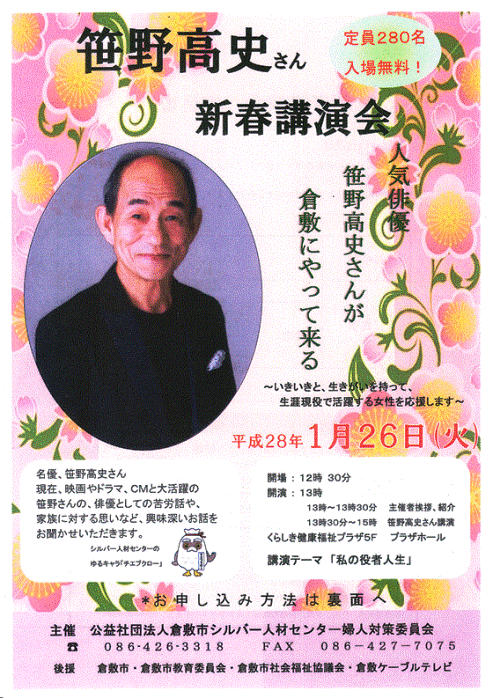 笹野高史さん
定員280名
入場無料！
新春講演会
人気俳優
笹野高史さんが
倉敷にやって来る
～いきいきと、生きがいを持って、
生涯現役で活躍する女性を応援します～
平成28年1月26日(火)
名優、笹野高史さん
現在、映画やドラマ、CMと大活躍の
笹野さんの、俳優としての苦労話や、
家族に対する思いなど、興味深いお話を
お聞かせいただきます。
シルバー人材センターの
ゆるキャラ「チエブクロー」
開場：12時 30分
開演：13時
13時～13時30分　主催者挨拶、紹介
13時30分～15時　笹野高史さん講演
くらしき健康福祉プラザ5F　プラザホール
講演テーマ 「私の役者人生」
*お申し込み方法は裏面へ
主催　公益社団法人倉敷市シルバー人材センター婦人対策委員会
☎　086-426-3318　FAX　086-427-7075
後援　倉敷市・倉敷市教育委員会・倉敷市社会福祉協議会・倉敷ケーブルテレビ